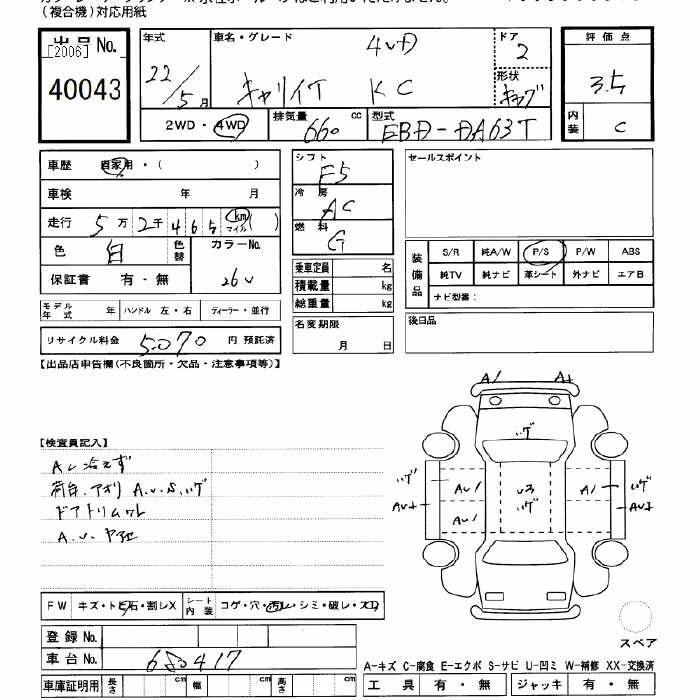 (複合機)対応用紙
出品No.
[2006]
40043
年式
22/5月
車名・グレード
4WD
キャリイT KC
ドア
2
形状
キャブ
評価点
3.5
内装
C
2WD・4WD
排気量
660 cc
型式
EBD-DA63T
車歴 自家用・( )
車検 年 月
走行 5万2千465 km マイル ( )
色 白 色替 カラーNo.
26U
保証書 有・無
モデル年式 年 ハンドル 左・右 ディーラー・並行
リサイクル料金 5070 円 預託済
シフト
F5
冷房
AC
燃料
G
乗車定員 名
積載量 kg
総重量 kg
名変期限
月 日
セールスポイント
装備品
S/R 純A/W P/S P/W ABS
純TV 純ナビ 革シート 外ナビ エアB
ナビ型番:
後日品
【出品店申告欄(不良箇所・欠品・注意事項等)】
【検査員記入】
荷台.アオリ A.U.S.
ドアトリム
A.U.
A/ A+
A/
AU/
AU/
AU+
AU+
FW キズ・トビ石・割レX シート内装 コゲ・穴・汚レ・シミ・破レ・スレ
登録No.
車台No. 680417
車庫証明用 長さ cm 幅 cm 高さ cm
スペア
A-キズ C-腐食 E-エクボ S-サビ U-凹ミ W-補修 XX-交換済
工具 有・無 ジャッキ 有・無